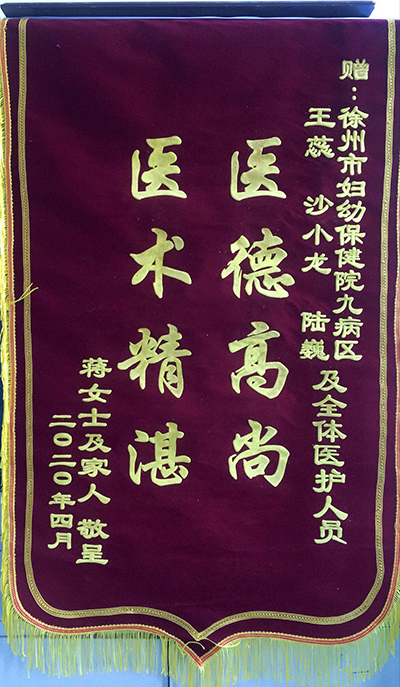 赠：徐州市妇幼保健院九病区
王蕊 沙小龙 陆巍及全体医护人员
医德高尚
医术精湛
蒋女士及家人 敬呈
二〇二〇年四月